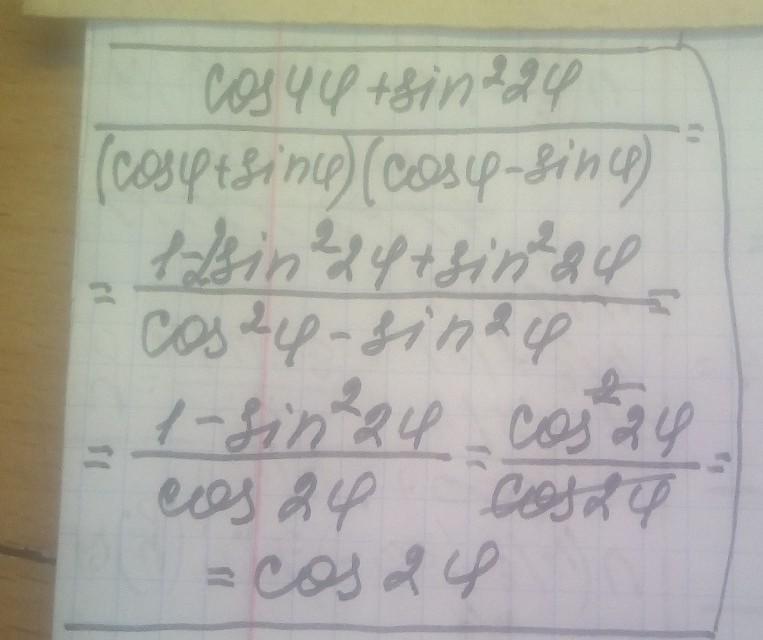 cos4φ+sin²2φ
(cosφ+sinφ)(cosφ-sinφ) =
= 1-2sin²2φ+sin²2φ =
cos²φ-sin²φ
= 1-sin²2φ = cos²2φ =
cos2φ cos2φ
= cos2φ